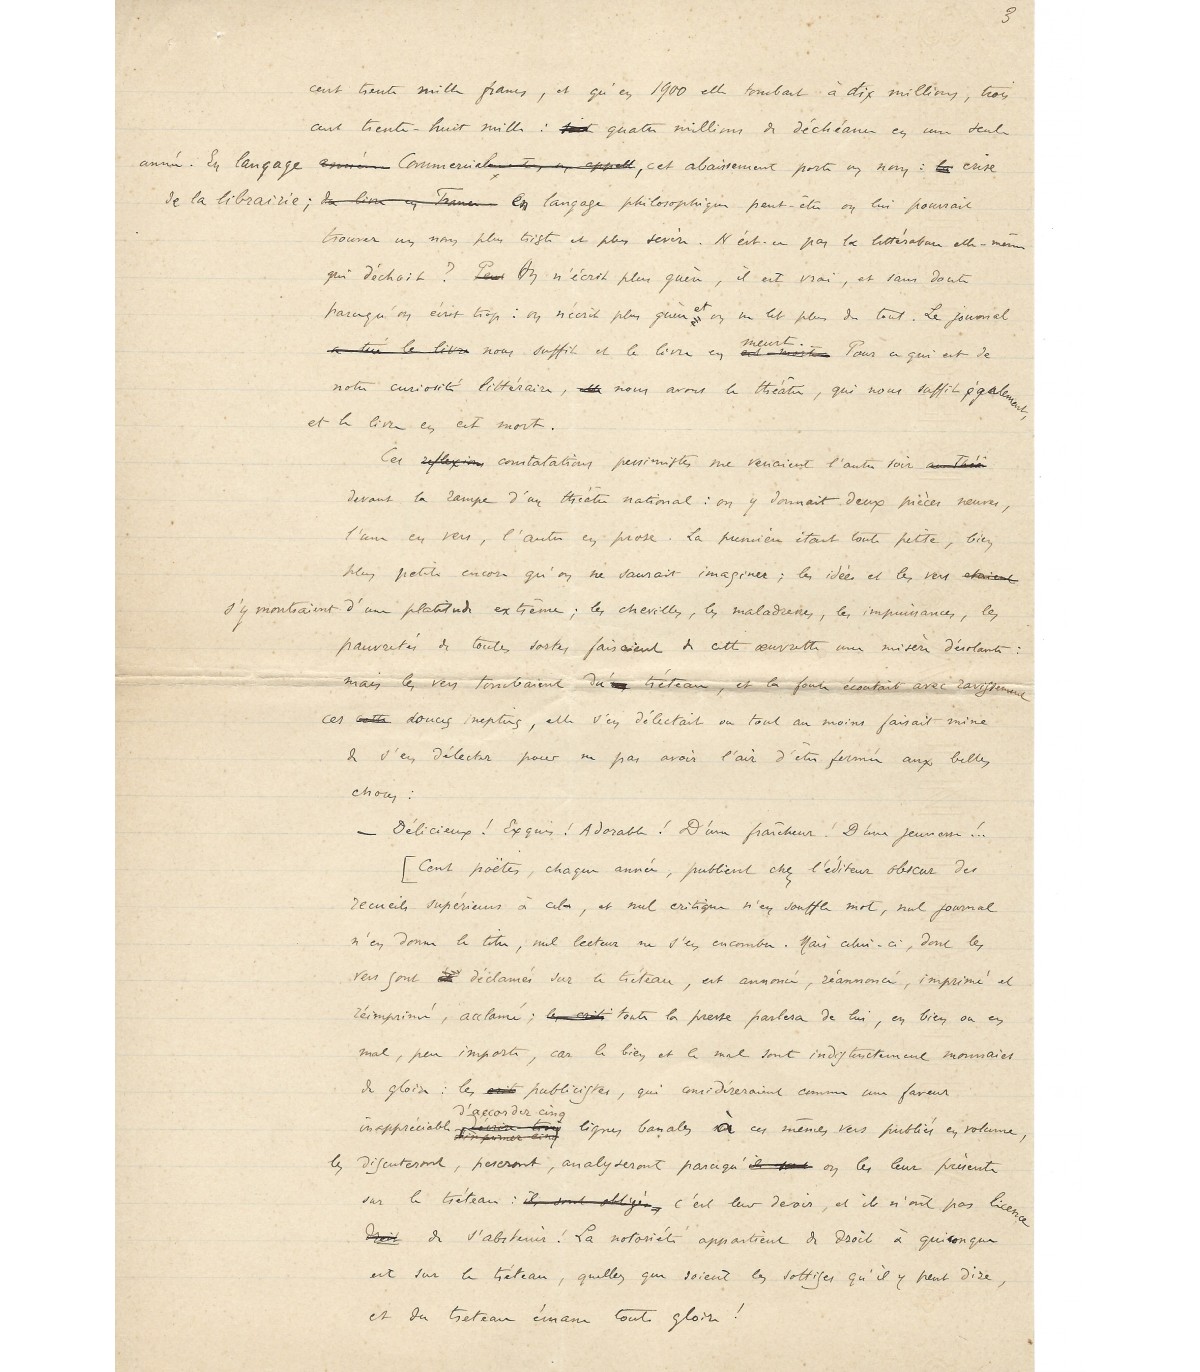 3
cent trente mille francs, et qu'en 1900 elle tombait à dix millions, trois
cent trente-huit mille : soit quatre millions de déchéance en une seule
année. En langage Commercialement, on appelle, cet abaissement porte un nom : la crise
de la librairie ; du livre en France En langage philosophique peut-être on lui pourrait
trouver un nom plus triste et plus sévère. N'est-ce pas la littérature elle-même
qui déchoit ? Peu On n'écrit plus guère, il est vrai, et sans doute
parce qu'on écrit trop : on n'écrit plus guère et on ne lit plus du tout. Le journal
a tué le livre nous suffit et le livre en est mort meurt. Pour ce qui est de
notre curiosité littéraire, nous avons le théâtre, qui nous suffit également,
et le livre en est mort.
Ces reflexions constatations pessimistes me venaient l'autre soir au théâ
devant la rampe d'un théâtre national : on y donnait deux pièces neuves,
l'une en vers, l'autre en prose. La première était toute petite, bien
plus petite encore qu'on ne saurait imaginer ; les idées et les vers etaient
s'y montraient d'une platitude extrême ; les chevilles, les maladresses, les impuissances, les
pauvretés de toutes sortes faisaient de cette œuvrette une misère désolante :
mais les vers tombaient du tréteau, et la foule écoutait avec ravissement
ces cette douces inepties, elle s'en délectait ou tout au moins faisait mine
de s'en délecter pour ne pas avoir l'air d'être fermée aux belles
choses :
— Délicieux ! Exquis ! Adorable ! D'une fraîcheur ! D'une jeunesse !..
[Cent poëtes, chaque année, publient chez l'éditeur obscur des
recueils supérieurs à cela, et nul critique n'en souffle mot, nul journal
n'en donne le titre, nul lecteur ne s'en encombre. Mais celui-ci, dont les
vers sont déclamés sur le tréteau, est annoncé, réannoncé, imprimé et
réimprimé, acclamé ; les criti toute la presse parlera de lui, en bien ou en
mal, peu importe, car le bien et le mal sont indistinctement monnaies
de gloire : les crit publicistes, qui considéreraient comme une faveur
d'accorder cinq
inappréciable d'écrire trois d'imprimer cinq lignes banales à ces mêmes vers publiés en volume,
les discuteront, pèseront, analyseront parce qu'il sont on les leur présente
sur le tréteau : ils sont obligés, c'est leur devoir, et ils n'ont pas licence
droit de s'abstenir ! La notoriété appartient de droit à quiconque
est sur le tréteau, quelles que soient les sottises qu'il y peut dire,
et du treteau émane toute gloire !